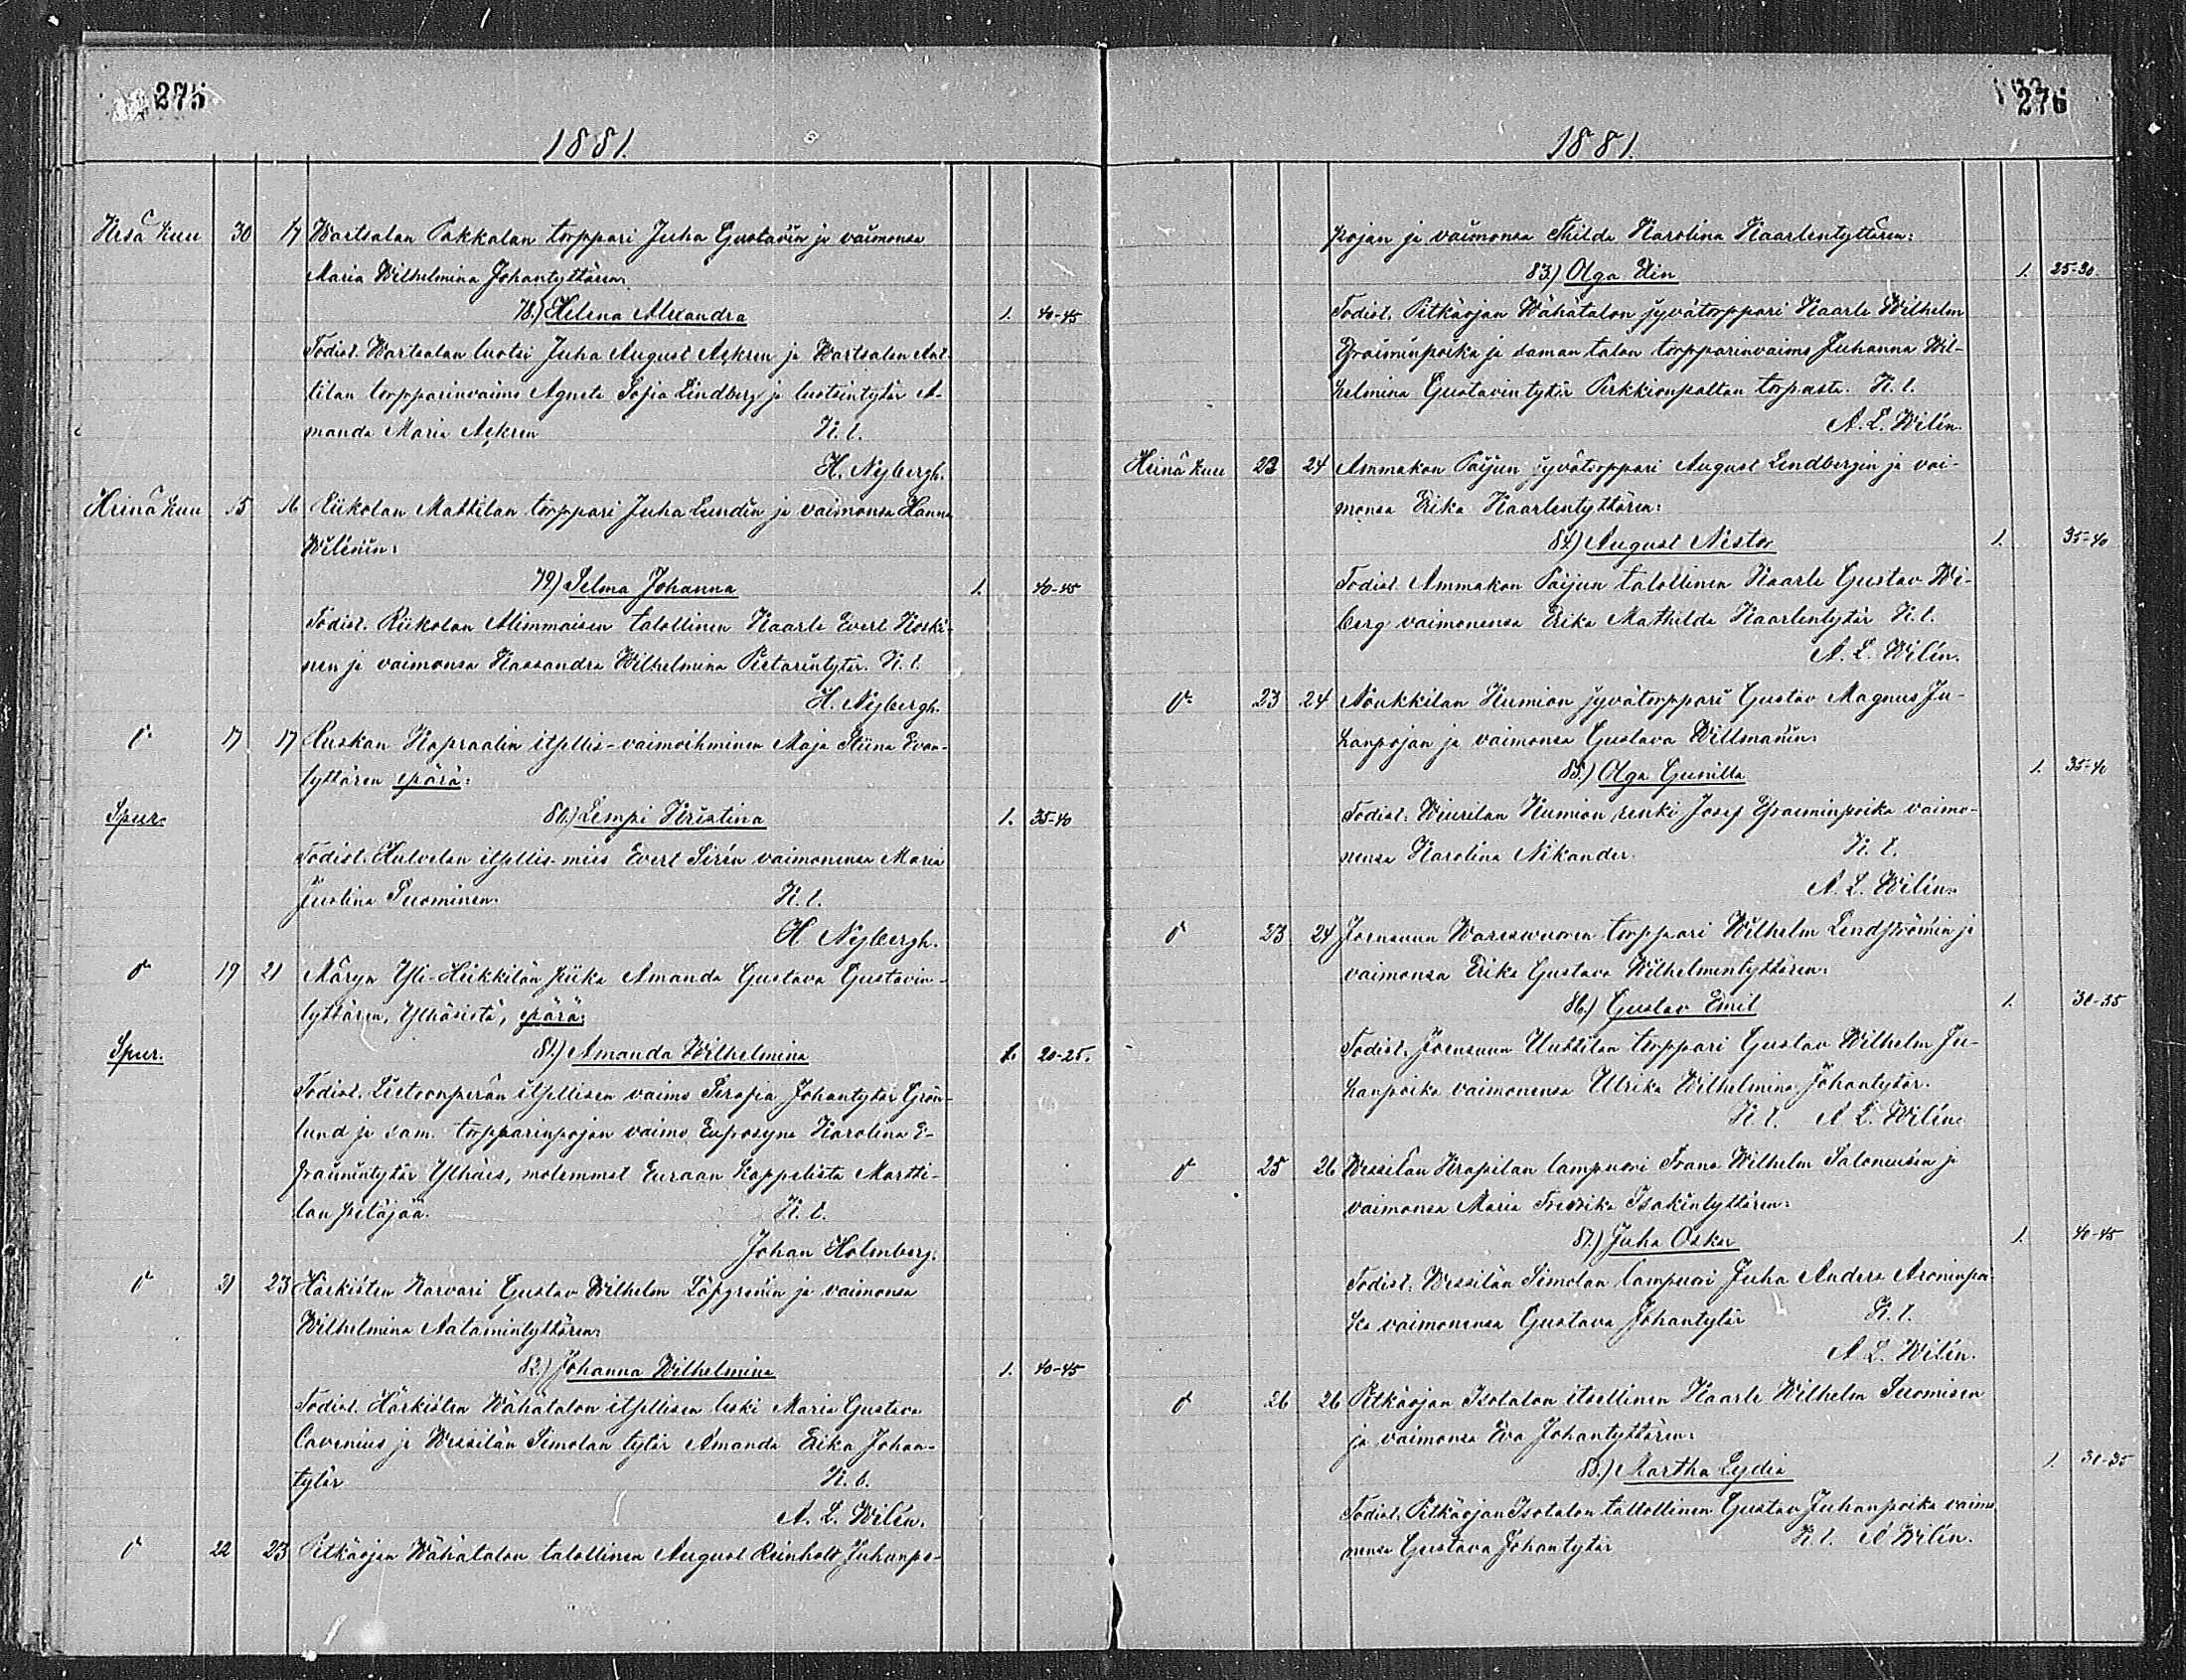 275
1881.
Kesä kuu 30 17 Wartsalan Pakkalan torppari Juha Gustavin ja vaimonsa
Maria Wilhelmina Johantyttären:
78.) Helena Alexandra 1. 40-45
Todist. Wartsalan luotsi Juha August Ackren ja Wartsalan Ant-
tilan torpparinvaimo Agneta Sofia Lindberg ja luotsintytär A-
manda Maria Ackren K. t.
H. Nybergh.
Heinä kuu 15 16 Riikolan Mattilan torppari Juha Lundin ja vaimonsa Hanna
Wilenin:
79) Selma Johanna 1. 40-45
Todist. Riikolan Alimmaisen talollinen Kaarle Evert Koski-
nen ja vaimonsa Kassandra Wilhelmina Pietarintytär. K. t.
H. Nybergh.
d:o 17 17 Ruskon Kapraalin itsellis-vaimoihminen Maja Stiina Evan-
tyttären äpärä:
Spur. 80.) Lempi Kristina 1. 35-40
Todist. Halvelan itsellis-mies Evert Sirén vaimonensa Maria
Juolina Tuominen. K. t.
H Nybergh.
d:o 19 21 Märyn Yli-Heikkilän piika Amanda Gustava Gustavin-
tyttären, Ylhäsistä, äpärä:
Spur. 81.) Amanda Wilhelmina 1. 20-25.
Todist. Lietvonperän itsellisen vaimo Serafia Johantytär Grön-
lund ja sam. torpparinpojan vaimo Eufrosyna Karolina E-
fraimintytär Ylhäis, molemmat Euraan Kappelista Martti-
lan pitäjää. K. t.
Johan Holmberg.
d:o 21 23 Härkisten Karvari Gustav Wilhelm Löfgrenin ja vaimonsa
Wilhelmina Aatamintyttären:
82.) Johanna Wilhelmina 1. 40-45
Todist. Härkisten Wähätalon itsellisen leski Maria Gustava
Cavenius ja Wessilän Simolan tytär Amanda Erika Johan-
tytär K. t.
A. L. Wilén.
d:o 22 23 Pitkäojan Wähätalon talollinen August Reinholt Juhanpo-
276
1881.
pojan ja vaimonsa Thilda Karolina Kaarlentyttären:
83.) Olga Elin 1. 25-30.
Todist. Pitkäojan Wähätalon jyvätorppari Kaarle Wilhelm
Efraiminpoika ja saman talon torpparinvaimo Juhanna Wil-
helmina Gustavintytär Pirkkionpaltan torpasta. K. t.
A. L. Wilén.
Heinä kuu 22 24 Ammakon Paijun jyvätorppari August Lindbergin ja vai-
monsa Erika Kaarlentyttären:
84.) August Nestor 1. 35-40
Todist. Ammakon Paijun talollinen Kaarle Gustav Wi-
berg vaimonensa Erika Mathilda Kaarlentytär K. t.
A. L. Wilén.
d:o 23 24 Noukkilan Kumion jyvätorppari Gustav Magnus Ju-
hanpojan ja vaimonsa Gustava Willmanin:
85.) Olga Gunilla 1. 35-40
Todist. Wiurilan Kumion renki Josef Efraiminpoika vaimo-
nensa Karolina Nikander. K. t.
A. L. Wilén.
d:o 23 24 Joensuun Wareswuoren torppari Wilhelm Lindströmin ja
vaimonsa Erika Gustava Wilhelmintyttären:
86.) Gustav Emil 1. 30-35
Todist. Joensuun Uuttilan torppari Gustav Wilhelm Ju-
hanpoika vaimonensa Ulrika Wilhelmina Johantytär.
K. t. A L. Wilén.
d:o 25 26 Wessilän Krapilan lampuori Frans Wilhelm Salomuisen ja
vaimonsa Maria Fredrika Isakintyttären:
87.) Juha Oskar 1. 40-45
Todist. Wessilän Simolan lampuori Juha Anders Aroninpoi-
ka vaimonensa Gustava Johantytär K. t.
A L. Wilén.
d:o 26 26 Pitkäojan Isotalon itsellinen Kaarle Wilhelm Suomisen
ja vaimonsa Eva Johantyttären:
88.) Martha Lydia 1. 30-35
Todist. Pitkäojan Isotalon talollinen Gustav Juhanpoika vaimo-
nensa Gustava Johantytär K. t. A Wilén.